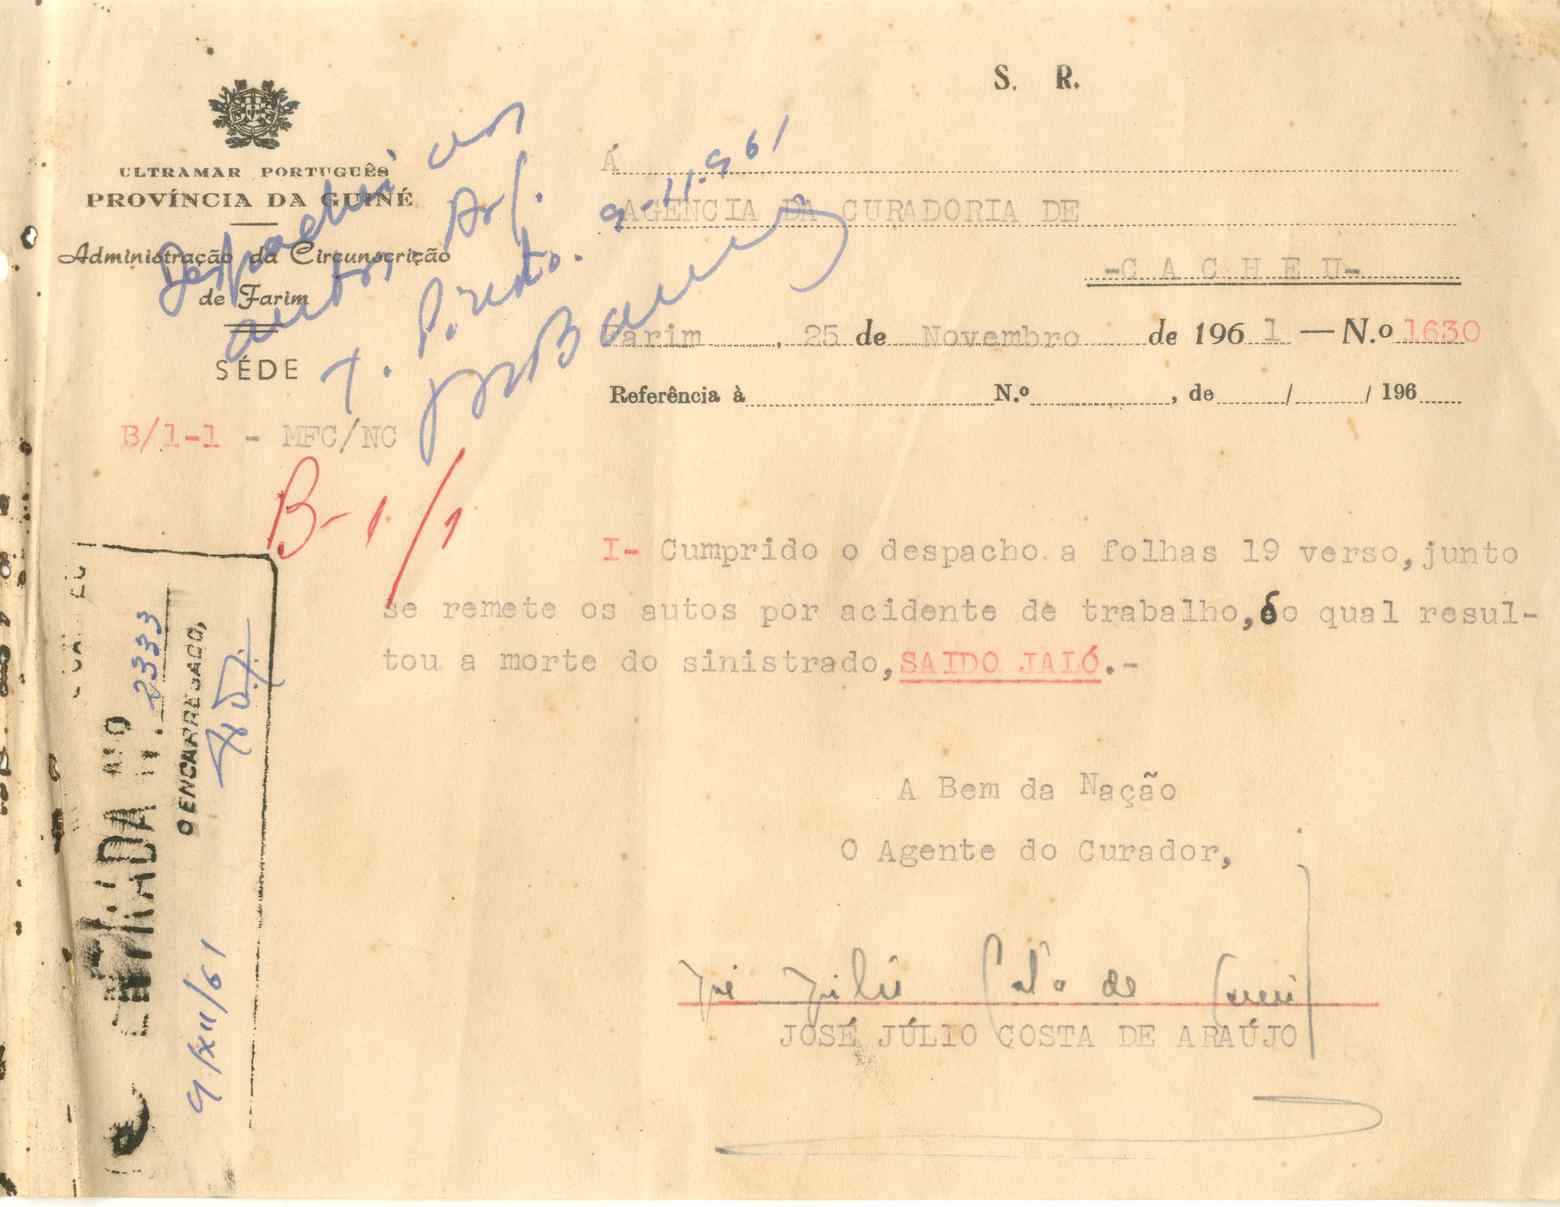 S. R.
ULTRAMAR PORTUGUÊS
PROVÍNCIA DA GUINÉ
Administração da Circunscrição
de Farim
SÉDE
Despachei nos
autos. Arq.
9-11-961
Á
AGENCIA DA CURADORIA DE
-C A C H E U-
Farim, 25 de Novembro de 1961 — N.º 1630
Referência à N.º , de / / 196
B/1-1 - MFC/NC
B-1/1
I- Cumprido o despacho a folhas 19 verso, junto
se remete os autos por acidente de trabalho, do qual resul-
tou a morte do sinistrado, SAIDO JALÓ.-
A Bem da Nação
O Agente do Curador,
José Júlio Costa de Araújo
JOSÉ JÚLIO COSTA DE ARAÚJO
ENTRADA
N. 2333
O ENCARREGADO,
9/XII/61